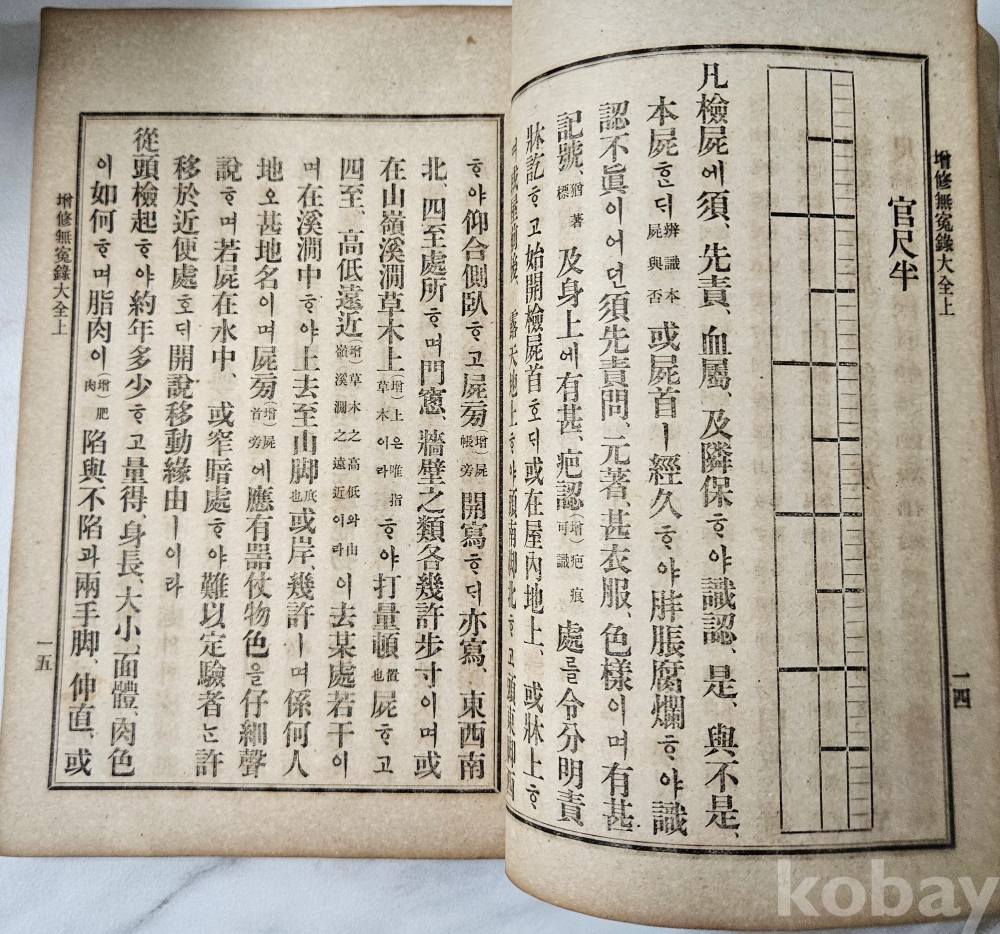 增修無寃錄大全上
一四
官尺半
凡檢屍에須、先責、血屬、及隣保ᄒᆞ야識認、是、與不是、
本屍ᄒᆞᆫ뎌辨識本屍與否或屍首ㅣ經久ᄒᆞ야胖脹腐爛ᄒᆞ야識
認不眞이어던須先責問、元著、甚衣服、色樣이며有甚
記號、猶著標及身上에有甚、疤認(增)疤痕可識處를令分明責
牀訖ᄒᆞ고始開檢屍首ᄒᆞ뎌或在屋內地上、或牀上ᄒᆞ
露天地上ᄒᆞ야頭南脚北ᄒᆞ고
ᄒᆞ야仰合側臥ᄒᆞ고屍旁(增)屍帳旁開寫ᄒᆞ뎌亦寫、東西南
北、四至處所ᄒᆞ며門窻、牆壁之類各幾許步寸이며或
在山嶺溪澗草木上(增)上은唯指草木이라ᄒᆞ야打量頓置也屍ᄒᆞ고
四至、高低遠近(增)草木之高低와由嶺溪澗之遠近이라이去某處若干이
며在溪澗中ᄒᆞ야上去至山脚底也或岸、幾許ㅣ며係何人
地오甚地名이며屍旁(增)屍首旁에應有器仗物色을仔細聲
說ᄒᆞ며若屍在水中、或窄暗處ᄒᆞ야難以定驗者ᄂᆞᆫ許
移於近便處ᄒᆞ뎌開說移動緣由ㅣ이라
從頭檢起ᄒᆞ야約年多少ᄒᆞ고量得、身長、大小、面體、肉色
이如何ᄒᆞ며脂肉이(增)肥肉陷與不陷과兩手脚、伸直、或
增修無寃錄大全上
一五
kobay